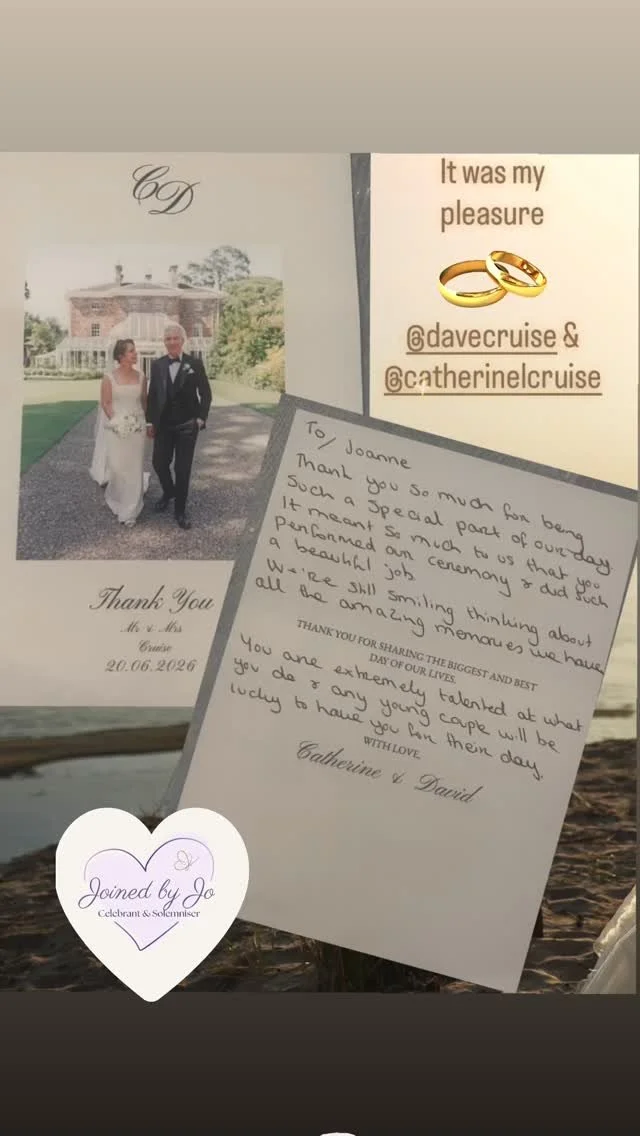 CD
Thank You
Mr & Mrs
Cruise
20.06.2026
It was my
pleasure
@davecruise &
@catherinelcruise
To/ Joanne
Thank you so much for being
such a special part of our day.
It meant so much to us that you
performed our ceremony & did such
a beautiful job.
We're still smiling thinking about
all the amazing memories we have
THANK YOU FOR SHARING THE BIGGEST AND BEST
DAY OF OUR LIVES.
You are extremely talented at what
you do & any young couple will be
lucky to have you for their day.
WITH LOVE,
Catherine & David
Joined by Jo
Celebrant & Solemniser